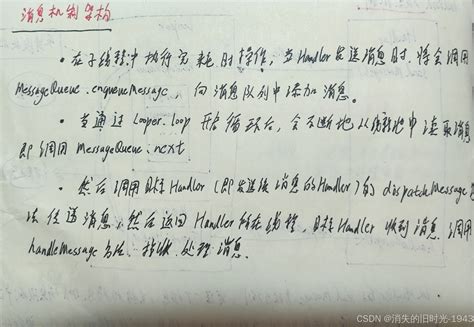 消息机制架构
• 在子线程中执行完耗时操作，当Handler发送消息时，将会调用
MessageQueue.enqueueMessage，向消息队列中添加消息。
• 当通过Looper.loop开启循环后，会不断地从线程池中读取消息
即调用MessageQueue.next
• 然后调用目标Handler（即发送该消息的Handler）的dispatchMessage方
法传递消息，然后返回Handler所在线程，目标Handler收到消息，调用
handleMessage方法，接收、处理消息。
CSDN @消失的旧时光-1943